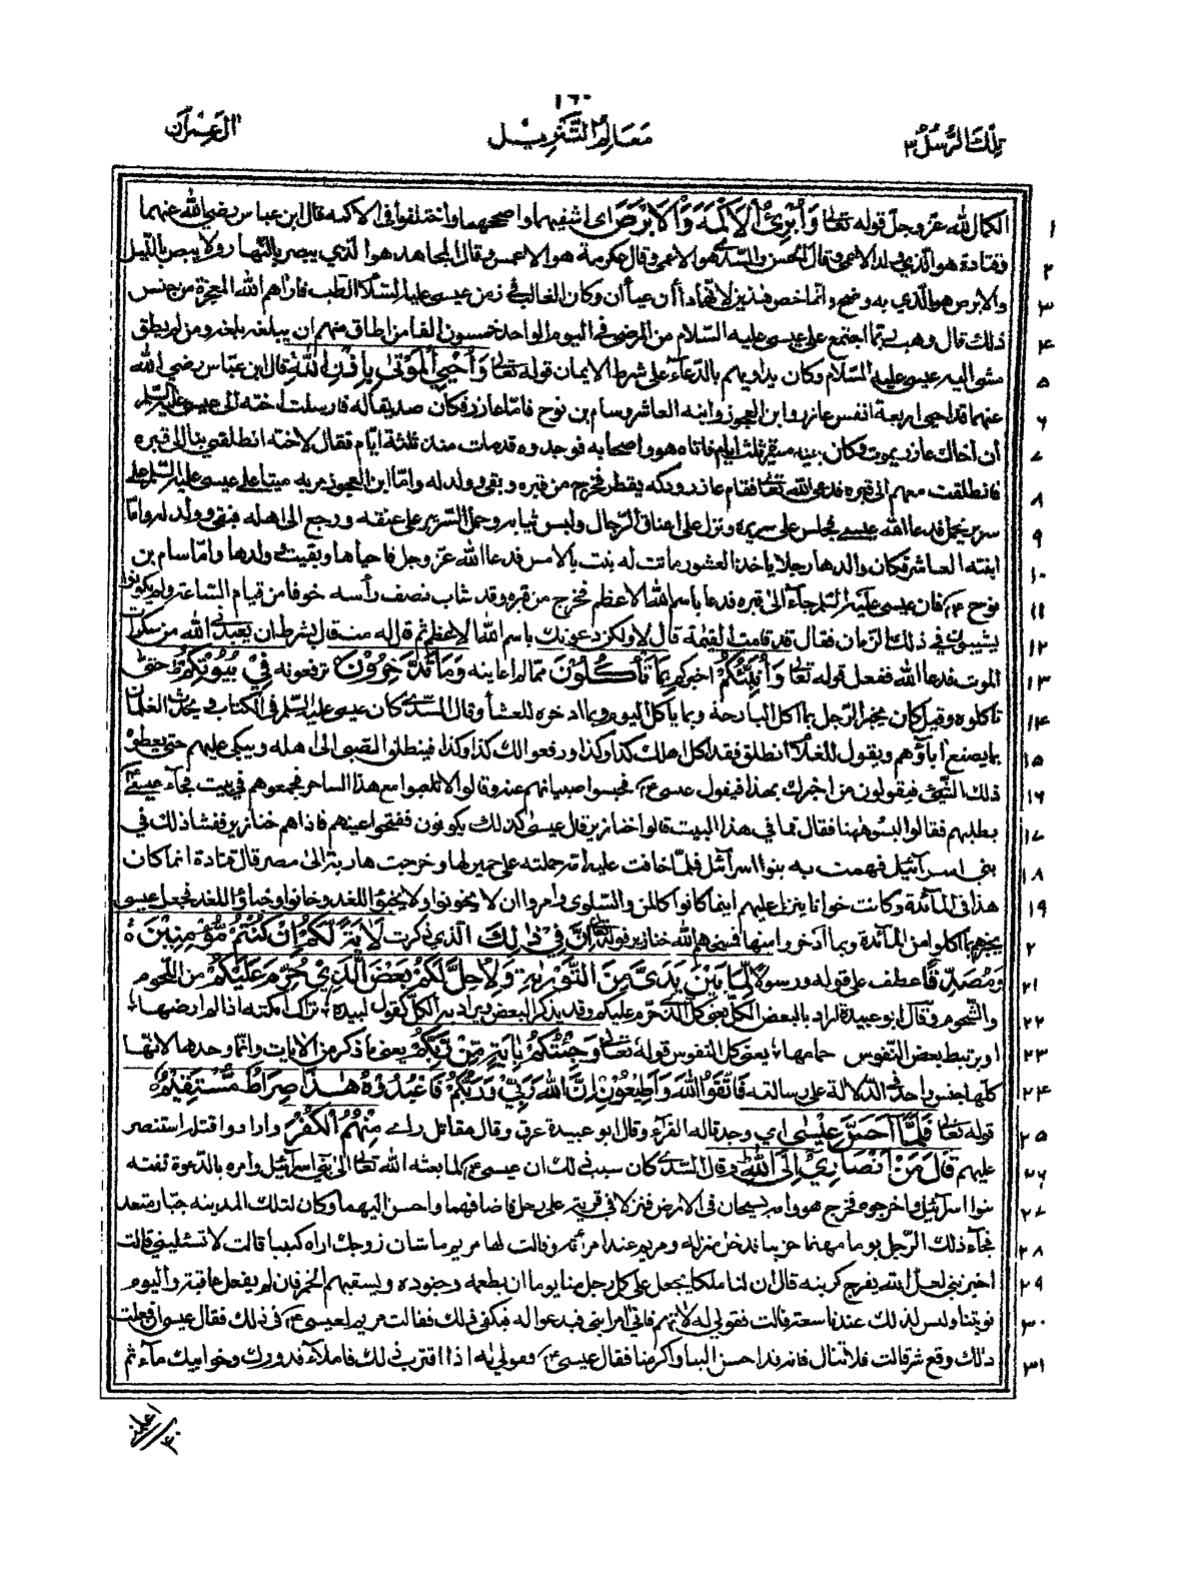 ١٦٠
تلك الرسل ٣
معالم التنزيل
ال عمران
١ الكمال لله عز وجل قوله تعالى وَأُبْرِئُ الْأَكْمَهَ وَالْأَبْرَصَ اى اشفيهما واصححهما واختلفوا فى الاكمه قال ابن عباس رضي الله عنهما
٢ وقتادة هو الذي ولد الاعمى وقال الحسن والسدى هو الاعمى وقال عكرمة هو الاعمش وقال المجاهد هو الذي يبصر بالنهار ولا يبصر بالليل
٣ والابرص هو الذي به وضح وانما خص هذين لانهما داأن عياأن وكان الغالب فى زمن عيسى عليه السلام الطب فاراهم الله المعجزة من جنس
٤ ذلك قال وهب ربما اجتمع على عيسى عليه السلام من المرضى فى اليوم الواحد خمسون الفا من اطاق منهم ان يبلغه بلغه ومن لم يطق
٥ مشى اليه عيسى عليه السلام وكان يداويهم بالدعاء على شرط الايمان قوله تعالى وَأُحْيِي الْمَوْتَى بِإِذْنِ اللهِ قال ابن عباس رضي الله
٦ عنهما قد احيى اربعة انفس عازر وابن العجوز وابنه العاشر وسام بن نوح فاما عازر فكان صديقا له فارسلت اخته الى عيسى عليه السلم
٧ أن اخاك عازر يموت وكان بينه مسيرة ثلث ايام فاتاه هو واصحابه فوجدوه قد مات منذ ثلثة ايام فقال لاخته انطلقي بنا الى قبره
٨ فانطلقت معهم الى قبره فدعى الله تعالى فقام عازر وودكه يقطر فخرج من قبره وبقى وولد له واما ابن العجوز مر به ميتا على عيسى عليه السلم على
٩ سرير يحمل فدعا الله عيسى فجلس على سريره ونزل على اعناق الرجال ولبس ثيابه وحمل السرير على عنقه ورجع الى اهله فبقى وولد له واما
١٠ ابنته العاشر فكان والدها رجلا ياخذ العشور ماتت له بنت بالامس فدعا الله عز وجل فاحياها وبقيت وولدها واما سام بن
١١ نوح ع فان عيسى عليه السلم جاء الى قبره فدعا باسم الله الاعظم فخرج من قبره وقد شاب نصف رأسه خوفا من قيام الساعة ولم يكونوا
١٢ يشيبون فى ذلك الزمان فقال قد قامت القيمة قال لا ولكن دعوتك باسم الله الاعظم ثم قال له مت قال بشرط ان يعيذنى الله من سكرات
١٣ الموت فدعا الله ففعل قوله تعالى وَأُنَبِّئُكُمْ اخبركم بِمَا تَأْكُلُونَ مما لم اعاينه وَمَا تَدَّخِرُونَ ترفعونه فِي بُيُوتِكُمْ حتى
١٤ تاكلوه وقيل كان يخبر الرجل بما اكل البارحة وبما ياكل اليوم وبما ادخره للعشأ وقال السدى كان عيسى عليه السلم فى الكتاب يحدث الغلمان
١٥ بما يصنع اباؤهم ويقول للغلام انطلق فقد اكل اهلك كذا وكذا ورفعوا لك كذا وكذا فينطلق الصبى الى اهله ويبكى عليهم حتى يعطوه
١٦ ذلك الشيء فيقولون من اخبرك بهذا فيقول عيسى ع فحبسوا صبيانهم عنه وقالوا لا تلعبوا مع هذا الساحر فجمعوهم فى بيت فجاء عيسى ع
١٧ يطلبهم فقالوا ليسوا ههنا فقال فما في هذا البيت قالوا خنازير قال عيسى كذلك يكونون ففتحوا عنهم فاذا هم خنازير ففشا ذلك في
١٨ بنى اسرائيل فهمت به بنوا اسرائيل فلما خافت عليه امه حملته على حمير لها وخرجت هاربة الى مصر قال قتادة انما كان
١٩ هذا فى المائدة وكانت خوانا ينزل عليهم اينما كانوا كالمن والسلوى وامروا ان لا يخونوا ولا يخبؤا للغد فخانوا وخباؤا للغد فجعل عيسى
٢٠ يخبرهم بما اكلوا من المائدة وبما ادخروا منها فمسخهم الله خنازير قوله تعالى إِنَّ فِي ذَلِكَ الذي ذكرت لَآيَةً لَّكُمْ إِنْ كُنْتُمْ مُّؤْمِنِينَ ٥
٢١ وَمُصَدِّقًا عطف على قوله ورسولا لِّمَا بَيْنَ يَدَيَّ مِنَ التَّوْرَاةِ وَلِأُحِلَّ لَكُمْ بَعْضَ الَّذِي حُرِّمَ عَلَيْكُمْ من اللحوم
٢٢ والشحوم وقال ابو عبيدة اراد بالبعض الكل يعنى كل الذى حرم عليكم وقد يذكر البعض ويراد به الكل كقول لبيد؛ تراك امكنة اذا لم ارضها؛
٢٣ او يرتبط بعض النفوس حمامها؛ يعنى كل النفوس قوله تعالى وَجِئْتُكُمْ بِآيَةٍ مِّنْ رَّبِّكُمْ يعنى ما ذكر من الايات وانما وحدها لانها
٢٤ كلها جنس واحد فى الدلالة على رسالته فَاتَّقُوا اللهَ وَأَطِيعُونِ إِنَّ اللهَ رَبِّي وَرَبُّكُمْ فَاعْبُدُوهُ هَذَا صِرَاطٌ مُّسْتَقِيمٌ ٥
٢٥ قوله تعالى فَلَمَّا أَحَسَّ عِيسَى اى وجد قاله الفراء وقال ابو عبيدة عرف وقال مقاتل راى مِنْهُمُ الْكُفْرَ وارادوا قتله استنصر
٢٦ عليهم قَالَ مَنْ أَنْصَارِي إِلَى اللهِ وقال السدى كان سبب ذلك ان عيسى ع لما بعثه الله تعالى الى بنى اسرائيل وامره بالدعوة نفته
٢٧ بنوا اسرائيل واخرجوه فخرج هو وامه يسيحان فى الارض فنزلا فى قرية على رجل فاضافهما واحسن اليهما وكان لتلك المدينة جبار متعد
٢٨ فجاء ذلك الرجل يوما مهتما حزينا فدخل منزله ومريم عند امرأته فقالت لها مريم ما شان زوجك اراه كئيبا قالت لا تسئليني قالت
٢٩ اخبرينى لعل الله يفرج كربته قال ان لنا ملكا يجعل على كل رجل منا يوما ان يطعمه وجنوده ويسقيهم الخمر فان لم يفعل عاقبه واليوم
٣٠ نوبتنا وليس لذلك عندنا سعة قالت فقولي له لا تهتم فانى امر ابنى فيدعو له فيكفى ذلك فقالت مريم لعيسى ع فى ذلك فقال عيسى ان فعلت
٣١ ذلك وقع شر قالت فلا تبال فانه قد احسن الينا واكرمنا فقال عيسى ع فقولي له اذا اقترب ذلك فاملاء قدورك وخوابيك ماء ثم